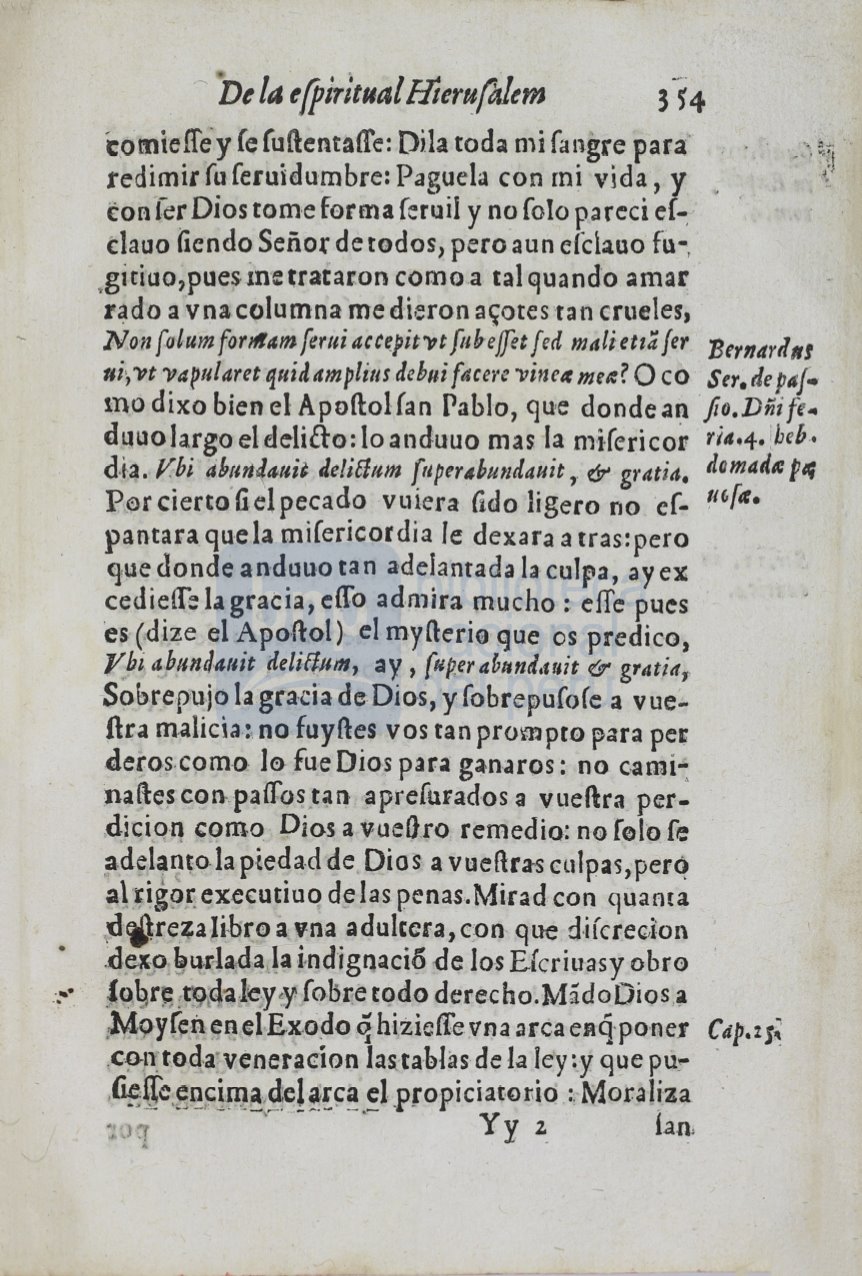 De la eſpiritual Hieruſalem 354
comieſſe y ſe ſuſtentaſſe: Dila toda mi ſangre para
redimir ſu ſeruidumbre: Paguela con mi vida, y
con ſer Dios tome forma ſeruil y no ſolo pareci eſ-
clauo ſiendo Señor de todos, pero aun eſclauo fu-
gitiuo, pues me trataron como a tal quando amar
rado a vna columna me dieron açotes tan crueles,
Non ſolum formam ſerui accepit vt ſub eſſet ſed mali etiã ſer
ui, vt vapularet quid amplius debui facere vineæ meæ? O co
mo dixo bien el Apoſtol ſan Pablo, que donde an
duuo largo el delicto: lo anduuo mas la miſericor
dia. Vbi abundauit delictum ſuperabundauit, & gratia.
Por cierto ſi el pecado vuiera ſido ligero no eſ-
pantara que la miſericordia le dexara a tras: pero
que donde anduuo tan adelantada la culpa, ay ex
cedieſſe la gracia, eſſo admira mucho: eſſe pues
es (dize el Apoſtol) el myſterio que os predico,
Vbi abundauit delictum, ay, ſuper abundauit & gratia,
Sobrepujo la gracia de Dios, y ſobrepuſoſe a vue-
ſtra malicia: no fuyſtes vos tan prompto para per
deros como lo fue Dios para ganaros: no cami-
naſtes con paſſos tan apreſurados a vueſtra per-
dicion como Dios a vueſtro remedio: no ſolo ſe
adelanto la piedad de Dios a vueſtras culpas, pero
al rigor executiuo de las penas. Mirad con quanta
deſtreza libro a vna adultera, con que diſcrecion
dexo burlada la indignaciõ de los Eſcriuas y obro
ſobre toda ley y ſobre todo derecho. Mãdo Dios a
Moyſen en el Exodo q̃ hizieſſe vna arca en q̃ poner
con toda veneracion las tablas de la ley: y que pu-
ſieſſe encima del arca el propiciatorio: Moraliza
Yy 2 ſan
Bernardus
Ser. de paſ-
ſio. Dñi fe-
ria. 4. heb.
domadæ pœ
noſæ.
Cap. 25.